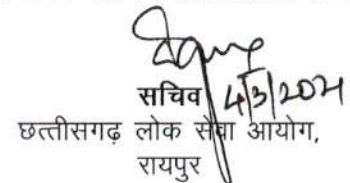 सचिव 4/3/2021
छत्तीसगढ़ लोक सेवा आयोग,
रायपुर